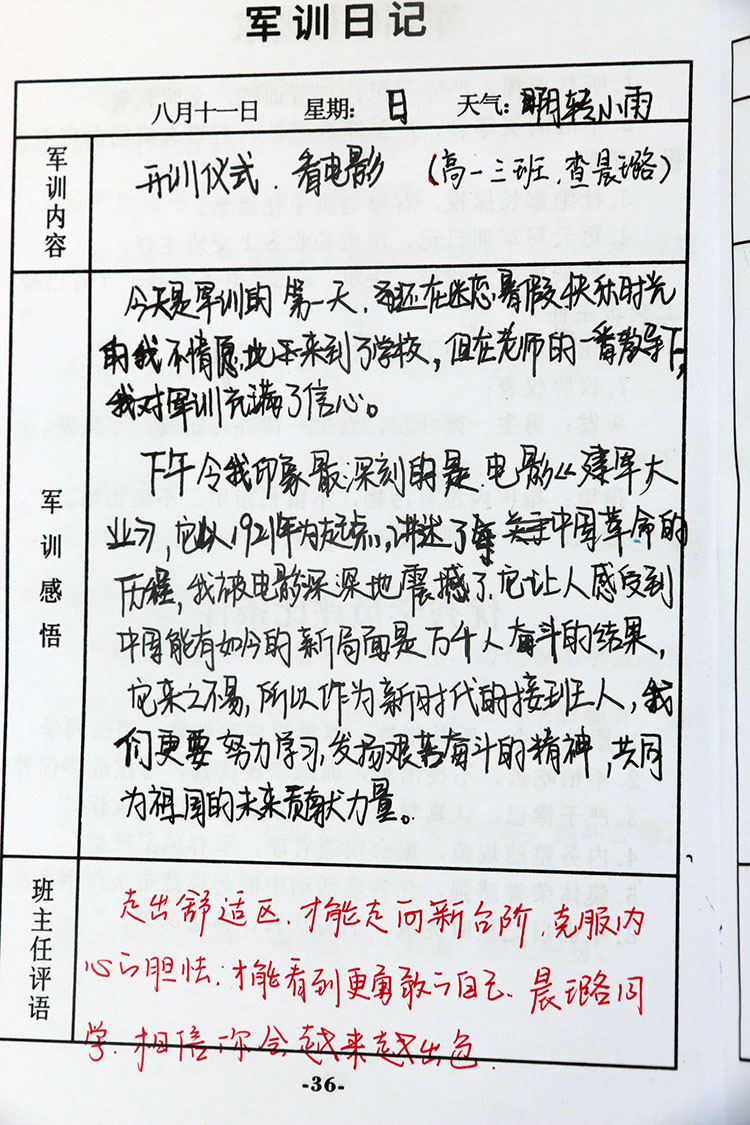 军训日记
八月十一日 星期：日 天气：晴转小雨
军训内容
开训仪式．看电影 （高一三班．查晨璐）
军训感悟
今天是军训的第一天．还在迷恋暑假快乐时光
的我不情愿地来到了学校，但在老师的一番教导下，
我对军训充满了信心。
下午令我印象最深刻的是电影《建军大
业》，它以1921年为起点，讲述了关于中国革命的
历程，我被电影深深地震撼了．它让人感受到
中国能有如今的新局面是万千人奋斗的结果，
它来之不易，所以作为新时代的接班人，我
们更要努力学习，发扬艰苦奋斗的精神，共同
为祖国的未来贡献力量。
班主任评语
走出舒适区．才能走向新台阶．克服内
心的胆怯．才能看到更勇敢的自己．晨璐同
学．相信你会越来越出色．
-36-